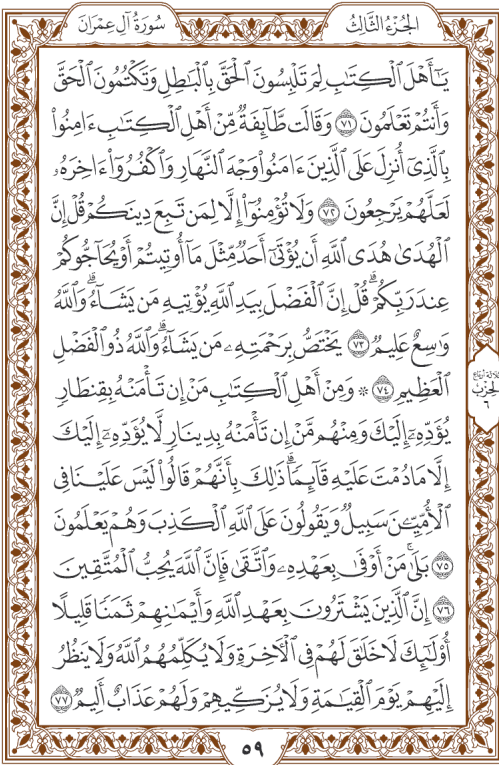 الجُزْءُ الثَّالِثُ
سُورَةُ آلِ عِمْرَانَ
يَٰٓأَهْلَ ٱلْكِتَٰبِ لِمَ تَلْبِسُونَ ٱلْحَقَّ بِٱلْبَٰطِلِ وَتَكْتُمُونَ ٱلْحَقَّ
وَأَنتُمْ تَعْلَمُونَ ٧١ وَقَالَت طَّآئِفَةٌ مِّنْ أَهْلِ ٱلْكِتَٰبِ ءَامِنُوا۟
بِٱلَّذِىٓ أُنزِلَ عَلَى ٱلَّذِينَ ءَامَنُوا۟ وَجْهَ ٱلنَّهَارِ وَٱكْفُرُوٓا۟ ءَاخِرَهُۥ
لَعَلَّهُمْ يَرْجِعُونَ ٧٢ وَلَا تُؤْمِنُوٓا۟ إِلَّا لِمَن تَبِعَ دِينَكُمْ قُلْ إِنَّ
ٱلْهُدَىٰ هُدَى ٱللَّهِ أَن يُؤْتَىٰٓ أَحَدٌ مِّثْلَ مَآ أُوتِيتُمْ أَوْ يُحَآجُّوكُمْ
عِندَ رَبِّكُمْ ۗ قُلْ إِنَّ ٱلْفَضْلَ بِيَدِ ٱللَّهِ يُؤْتِيهِ مَن يَشَآءُ ۗ وَٱللَّهُ
وَٰسِعٌ عَلِيمٌ ٧٣ يَخْتَصُّ بِرَحْمَتِهِۦ مَن يَشَآءُ ۗ وَٱللَّهُ ذُو ٱلْفَضْلِ
ٱلْعَظِيمِ ٧٤ ۞ وَمِنْ أَهْلِ ٱلْكِتَٰبِ مَنْ إِن تَأْمَنْهُ بِقِنطَارٍ
يُؤَدِّهِۦٓ إِلَيْكَ وَمِنْهُم مَّنْ إِن تَأْمَنْهُ بِدِينَارٍ لَّا يُؤَدِّهِۦٓ إِلَيْكَ
إِلَّا مَا دُمْتَ عَلَيْهِ قَآئِمًا ۗ ذَٰلِكَ بِأَنَّهُمْ قَالُوا۟ لَيْسَ عَلَيْنَا فِى
ٱلْأُمِّيِّۦنَ سَبِيلٌ وَيَقُولُونَ عَلَى ٱللَّهِ ٱلْكَذِبَ وَهُمْ يَعْلَمُونَ
٧٥ بَلَىٰ مَنْ أَوْفَىٰ بِعَهْدِهِۦ وَٱتَّقَىٰ فَإِنَّ ٱللَّهَ يُحِبُّ ٱلْمُتَّقِينَ
٧٦ إِنَّ ٱلَّذِينَ يَشْتَرُونَ بِعَهْدِ ٱللَّهِ وَأَيْمَٰنِهِمْ ثَمَنًا قَلِيلًا
أُو۟لَٰٓئِكَ لَا خَلَٰقَ لَهُمْ فِى ٱلْءَاخِرَةِ وَلَا يُكَلِّمُهُمُ ٱللَّهُ وَلَا يَنظُرُ
إِلَيْهِمْ يَوْمَ ٱلْقِيَٰمَةِ وَلَا يُزَكِّيهِمْ وَلَهُمْ عَذَابٌ أَلِيمٌ ٧٧
ثلاثة أرباع
الحِزْب
٦
٥٩